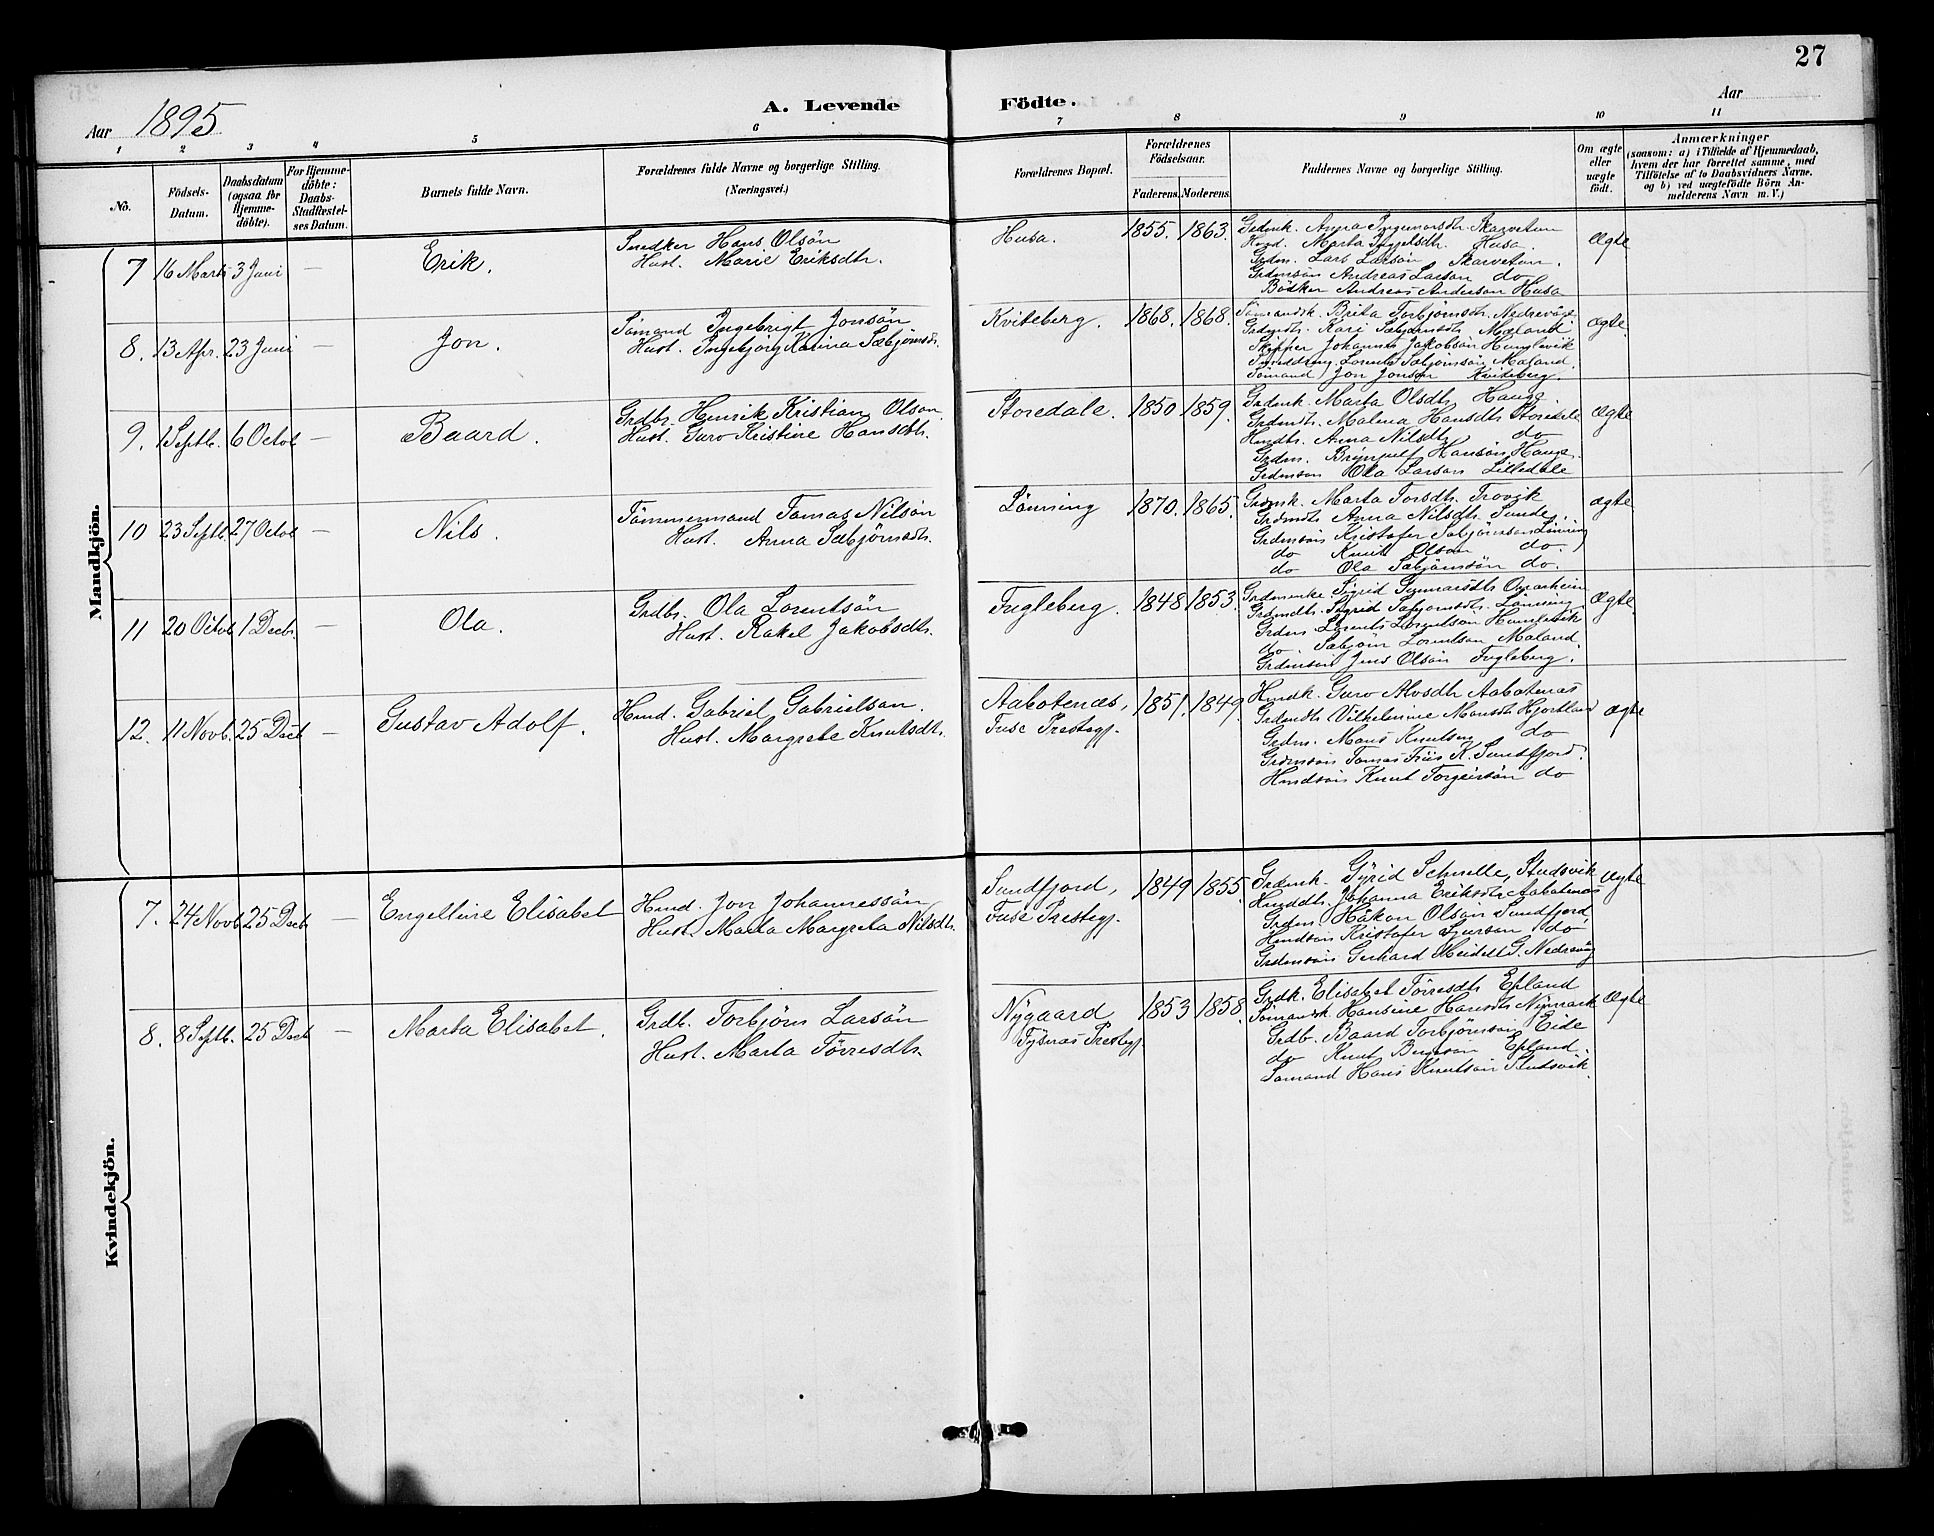 27
Aar 1895
A. Levende Födte.
Aar
1 2 3 4 5 6 7 8 9 10 11
No.
Födsels-Datum.
Daabsdatum (ogsaa for Hjemme-döbte).
For Hjemme-döbte: Daabs-Stadfæstel-ses Datum.
Barnets fulde Navn.
Forældrenes fulde Navne og borgerlige Stilling.
(Næringsvei.)
Forældrenes Bopæl.
Forældrenes Födselsaar.
Faderens. Moderens.
Faddernes Navne og borgerlige Stilling.
Om ægte eller uægte födt.
Anmærkninger
(saasom: a) i Tilfælde af Hjemmedaab, hvem der har forrettet samme, med Tilföielse af to Daabsvidners Navne. og b) ved uægtefödte Börn An-melderens Navn m. V.)
Mandkjön.
7 16 Marts 3 Juni — Erik.
Snedker Hans Olsön
Hust. Marie Eriksdtr.
Husa. 1855. 1863.
Grdmk. Anna Ingemarsdtr. Skarveten
Hmd. Marta Husa.
Grdm. Lars Larsön Skarveten.
Grdmsön Andreas Larson do
Bödker Andreas Anderson Husa
Ægte
8. 13 Apr. 23 Juni — Jon.
Sömand Ingebrigt Jonsön
Hust. Ingebjörg Karina Sæbjörnsdtr.
Kviteberg. 1868. 1868.
Sömandsk. Brita Torbjörnsdtr. Nedrevåge
Grdmdtr. Kari Sæbjörnsdtr Mæland
Skipper Johannes Jakobsön Hunglevik
Lorents Sæbjörnsön Mæland.
Sömand Jon Jonsen Kviteberg.
ægte
9. 1 Septb. 6 Octob — Baard.
Grdbr. Henrik Kristian Olson.
Hust. Guro Kristine Hansdtr.
Storedale. 1850 1859.
Grdmk. Marta Olsdtr Hauge.
Grdmdtr. Malena Hansdtr Storedale
Hmdtr. Anna Nilsdtr do
Grdm. Brynjulf Hansön Hauge.
Grdmsön Ola Larson Lilledale
Ægte
10 23 Septb. 27 Octob — Nils.
Tömmermand Tomas Nilsön
Hust. Anna Sæbjörnsdtr.
Lönning 1870. 1865.
Grdmk. Marta Torsdtr. Trovik
Grdmdtr Anna Nilsdtr. Sunde.
Grdmsön Kristofer Sæbjörnsön Lönning
do Knut Olson do.
do Ola Sæbjörnsön do.
ægte
11 20 Octob 1 Decbr. — Ola.
Grdbr. Ola Lorentsön
Hust. Rakel Jakobsdtr.
Fugleberg. 1848 1853.
Grdmenke Sigrid Gunnarsdtr
Grdmdtr. Sigrid Sæbjörnsdtr. Lönning
Grdm Lorents Lorentsön Hunglevik
do. Sæbjörn Lorentsön Mæland
Grdmsön Jens Olsön Fugleberg.
Ægte
12. 11 Novb. 25 Decb — Gustav Adolf.
Hmd. Gabriel Gabrielsön.
Hust. Margrete Knutsdtr.
Aabotenæs, Fuse Prestegj. 1851. 1849.
Hmdk. Guro Alvsdtr Aabotenæs
Grdmdtr Vilhelmine Monsdtr Hjortland
Grdm. Mons Knutsen do
Grdmsön Tomas Friis K. Sundfjord.
Hmdsön Knut Torgeirsön do
ægte
Kvindekjön.
7. 24 Novb 25 Decb — Engeltine Elisabet
Hmd. Jon Johannessön
Hust. Marta Margreta Nilsdtr.
Sundfjord, Fuse Prestegj. 1849 1855.
Grdmk. Gÿrid Schnelle, Stusvik
Hmddtr. Johanna Eriksdtr Aabotenæs
Grdm. Håkon Olson Sundfjord
Hmdsön Kristofer Sjurson do
Grdmsön Gerhard Meidell G. Nedrevåg
ægte
8. 8 Septb. 25 Decb — Marta Elisabet.
Grdb. Torbjörn Larsön
Hust. Marta Törresdtr.
Nÿgaard Tÿsnæs Prestegj. 1853 1858.
Grdk. Elisabet Törresdtr Epland
Sömandsk Hansine Hansdtr Nÿmark
Grdb. Baard Torbjörnsön Eide
do Knut Epland.
Sömand Hans Knutsön Stusvik.
Ægte